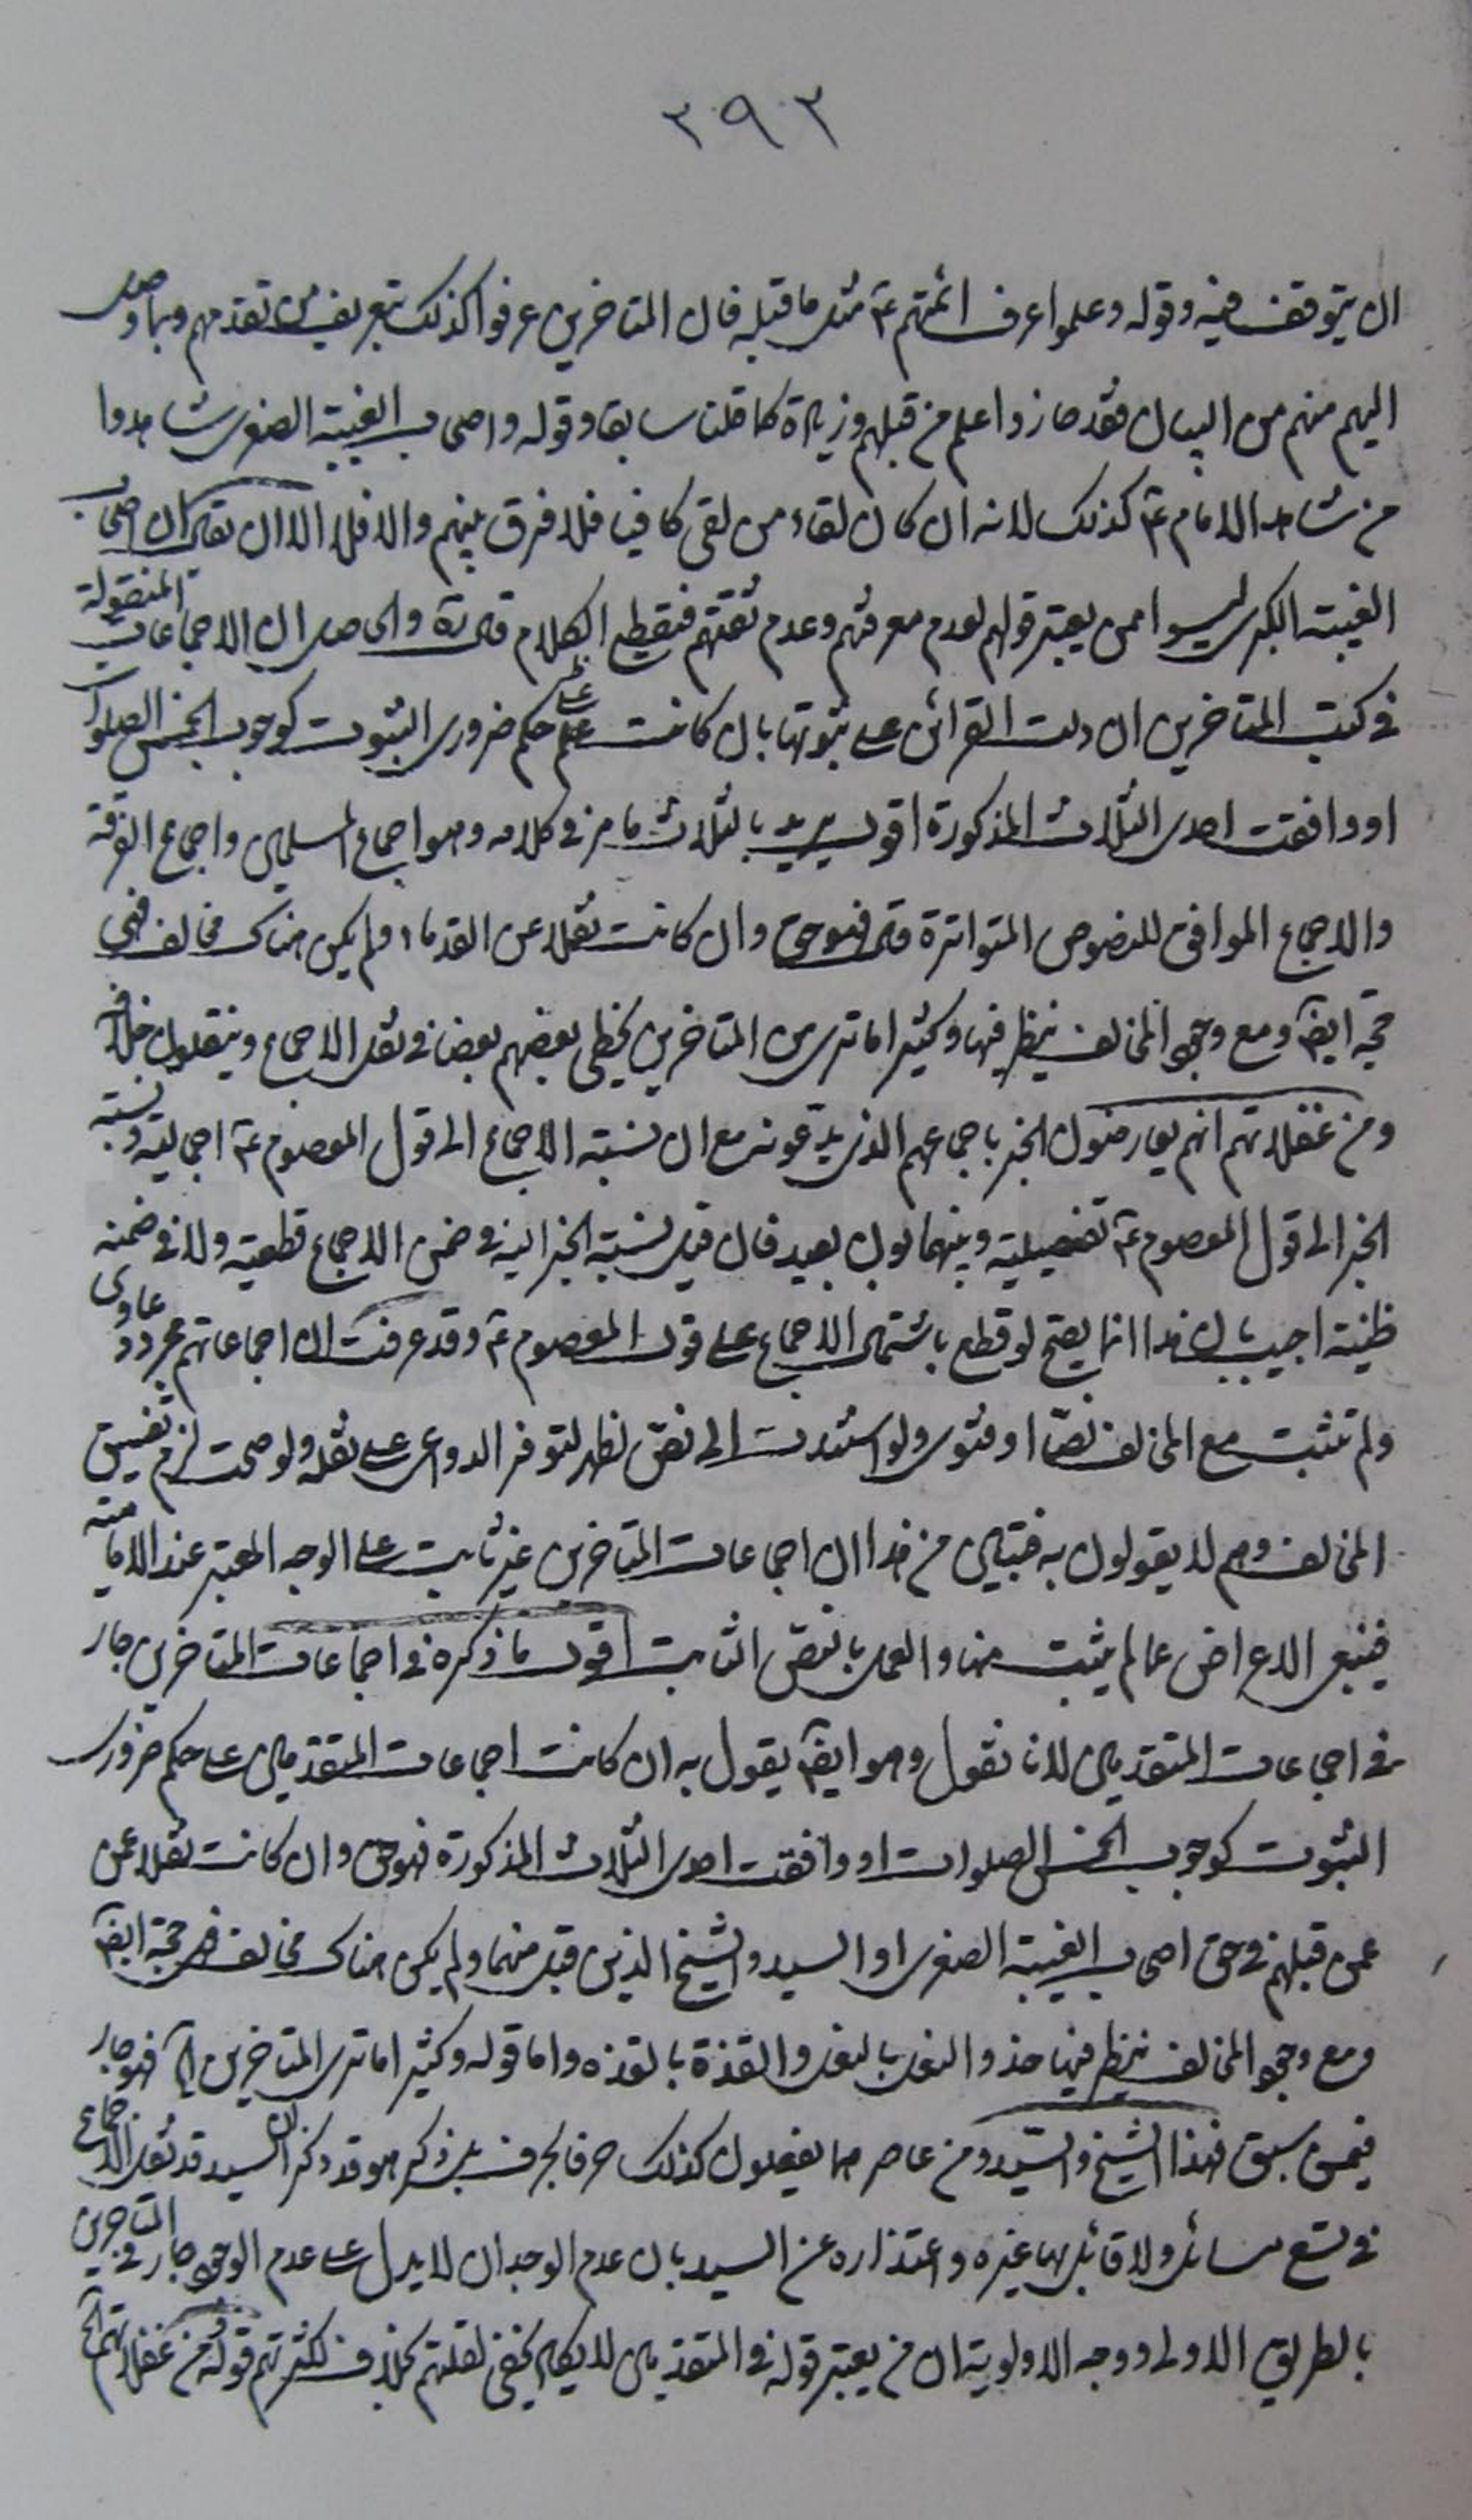 ٣٩٣
ان يتوقف فيه وقوله وعلموا عرف ائمتهم ع مثل ما قبله فان المتاخرين عرفوا كذلك بتعريف من تقدمهم وبما وصل
اليهم منهم من البيان فقد حازوا علم من قبلهم وزيادة كما قلنا سابقا وقوله واصحاب الغيبة الصغرى شاهدوا
من شاهد الامام ع كذلك لانه ان كان لقاء من لقى كافيا فلا فرق بينهم والا فلا الا ان يقال ان اصحاب
الغيبة الكبرى ليسوا ممن يعتبر قولهم لعدم معرفتهم وعدم ثقتهم فنقطع الكلام قال ره والحاصل ان الاجماعات المنقولة
فى كتب المتاخرين ان دلت القرائن على ثبوتها بان كانت على حكم ضرورى الثبوت كوجوب الخمس الصلوات
او وافقت احدى الثلاث المذكورة اقول يريد بالثلاث ما مر فى كلامه وهو اجماع المسلمين واجماع الفرقة
والاجماع الموافق للنصوص المتواترة قال فهو حق وان كانت نقلا عن القدماء ولم يكن هناك مخالف فهى
حجة ايضا ومع وجود المخالف ينظر فيها وكثيرا ما ترى من المتاخرين يخطى بعضهم بعضا فى نقل الاجماع وينقلون خلافه
ومن غفلاتهم انهم يعارضون الخبر باجماعهم الذى يدعونه مع ان نسبة الاجماع الى قول المعصوم ع اجمالية ونسبة
الخبر الى قول المعصوم ع تفصيلية وبينهما بون بعيد فان قيل نسبة الخبر اليه فى ضمن الاجماع قطعية ولا فى ضمنه
ظنية اجيب بان هذا انما يصح لو قطع باشتمال الاجماع على قول المعصوم ع وقد عرفت ان اجماعاتهم مجرد دعاوى
ولم تثبت مع المخالف نصا او فتوى ولو استندت الى نص لظهر لتوفر الدواعى على نقله ولو صحت لزم تفسيق
المخالف وهم لا يقولون به فتبين من هذا ان اجماعات المتاخرين غير ثابت على الوجه المعتبر عند الامامية
فينبغى الاعراض عما لم يثبت منها والعمل بالنص الثابت اقول ما ذكره فى اجماعات المتاخرين جار
فى اجماعات المتقدمين لانا نقول وهو ايضا يقول به ان كانت اجماعات المتقدمين على حكم ضرورى
الثبوت كوجوب الخمس الصلوات او وافقت احدى الثلاث المذكورة فهو حق وان كانت نقلا عن
عمن قبلهم فى حق اصحاب الغيبة الصغرى او السيد والشيخ الذين قبل منهما ولم يكن هناك مخالف فهى حجة ايضا
ومع وجود المخالف ينظر فيها حذو النعل بالنعل والقذة بالقذة واما قوله وكثيرا ما ترى المتاخرين اه فهو جار
فيمن سبق فهذا الشيخ والسيد ومن عاصرهما يفعلون كذلك حرفا بحرف بل ذكر هو قد ذكر ان السيد قد نقل الاجماع
فى تسع مسائل ولا قائل بها غيره واعتذاره عن السيد بان عدم الوجدان لا يدل على عدم الوجود جار فى المتاخرين
بالطريق الاولى ووجه الاولوية ان من يعتبر قوله فى المتقدمين لا يكاد يخفى لقلتهم بخلاف لكثرتهم قوله ومن غفلاتهم الخ